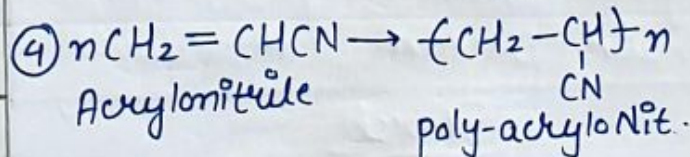 ④ nCH₂ = CHCN → {CH₂ - CH}n
CN
Acrylonitrile
poly-acryloNit.